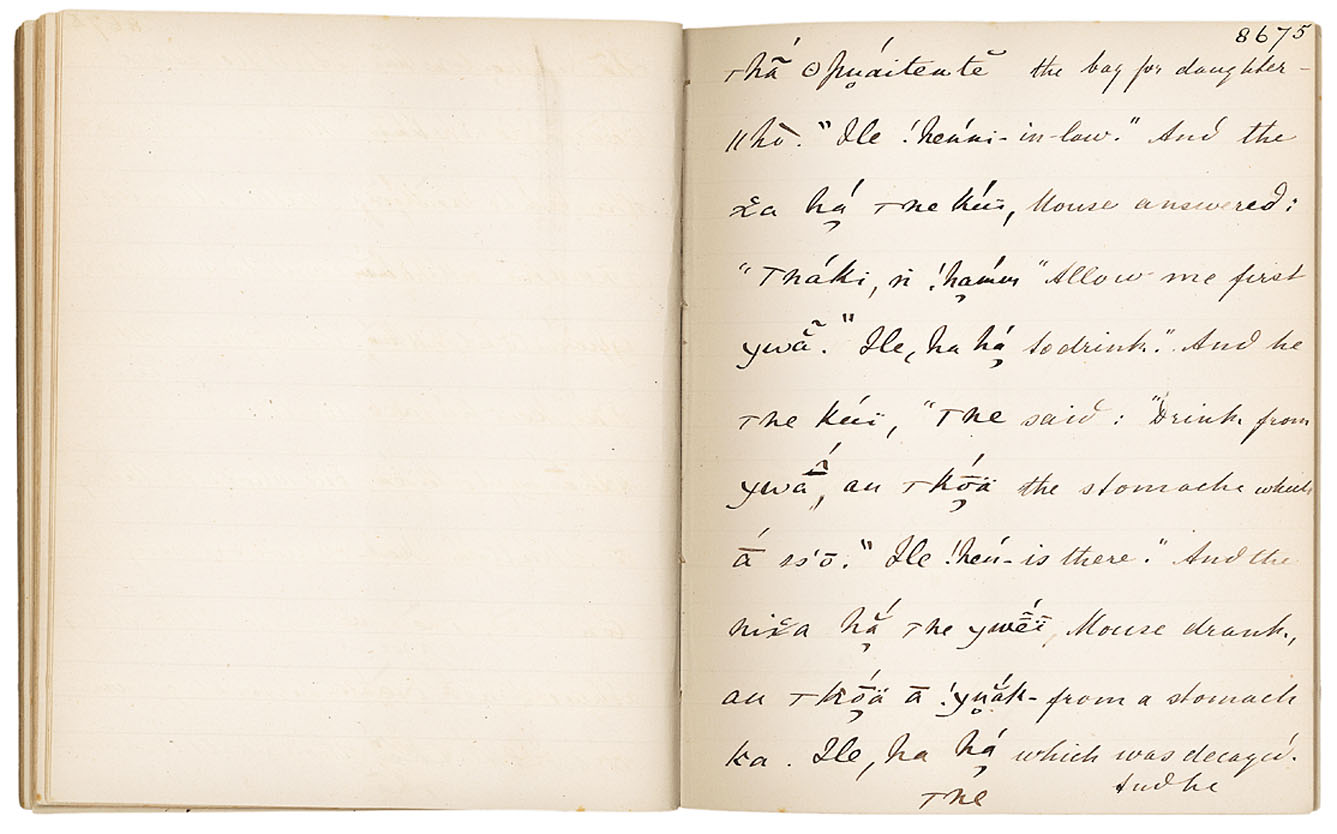 8675
ꞇhã́ ʘpu̥áitentĕ the bag for daughter-
ǁhò̄." Ile ǃhéṅni- in-law." And the
ꭓa há̦ ꞇne kúï, Mouse answered:
"Ꞇnáki, ń "Allow me first
ywã̆." Ile, ha há̦ to drink." And he
ꞇne kúï, "Ꞇne said: "Drink from
ywā̃́, au ꞇkṓ̦ä the stomach which
ā́ ss'ō." Ile ǃhéṅ- is there." And the
niꭓa hắ̦ ꞇne Mouse drank,
au ꞇkṓ̦ä ā ǃyu̥ắk- from a stomach
ka. Ile, ha há̦ which was decayed.
ꞇne And he